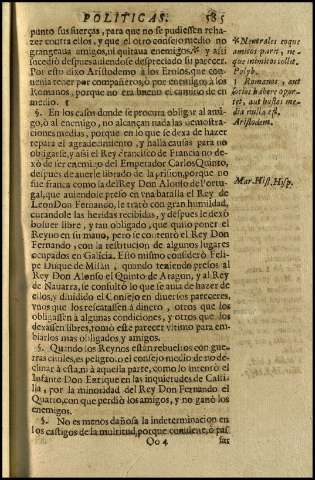 POLITICAS. 585
punto sus fuerças, para que no se pudiessen reha-
zer contra ellos, y que el otro consejo medio no
grangeaua amigos, ni quitaua enemigos,* y assi
sucediò despues auiendose despreciado su parecer.
Por esto dixo Aristodemo à los Etolos, que con-
uenia tener por compañeros, ò por enemigos à los
Romanos, porque no era bueno el camino de en
medio. 1
§. En los casos donde se procura obligar al ami-
go, ò al enemigo, no alcançan nada las demostra-
ciones medias, porque en lo que se dexa de hazer
repara el agradecimiento, y halla causas para no
obligarse, y assi el Rey Francisco de Francia no de-
xò de ser enemigo del Emperador Carlos Quinto,
despues de auerle librado de la prision, porque no
fue franca como la del Rey Don Alonso de Portu-
gal, que auiendole preso en vna batalla el Rey de
Leon Don Fernando, le tratò con gran humildad,
curandole las heridas recibidas, y despues le dexò
boluer libre, y tan obligado, que quiso poner el
Reyno en su mano, pero se contentò el Rey Don
Fernando, con la restitucion de algunos lugares
ocupados en Galicia. Esto mismo considerò Feli-
pe Duque de Milan, quando teniendo presos al
Rey Don Alonso el Quinto de Aragon, y al Rey
de Nauarra, se consultò lo que se auia de hazer de
ellos, y diuidido el Consejo en diuersos pareceres,
vnos que los rescatassen à dinero, otros que los
obligassen à algunas condiciones, y otros que los
dexassen libres, tomò este parecer vltimo para em-
biarlos mas obligados y amigos.
§. Quando los Reynos estàn rebueltos con gue-
rras ciuiles, es peligroso el consejo medio de no de-
clinar à esta, ni à aquella parte, como lo intentò el
Infante Don Enrique en las inquietudes de Casti-
lla, por la minoridad del Rey Don Fernando el
Quarto, con que perdiò los amigos, y no ganò los
enemigos.
§. No es menos dañosa la indeterminacion en
los castigos de la multitud, porque conuiene, ò pas
Oo 4 sar
* Neutralitas neque
amicos parit, ne-
que inimicos tollit.
Polyb.
1 Romanos, aut
socios habere opor-
tet, aut hostes me-
dia nulla est.
Aristodem.
Mar. Hist. Hisp.